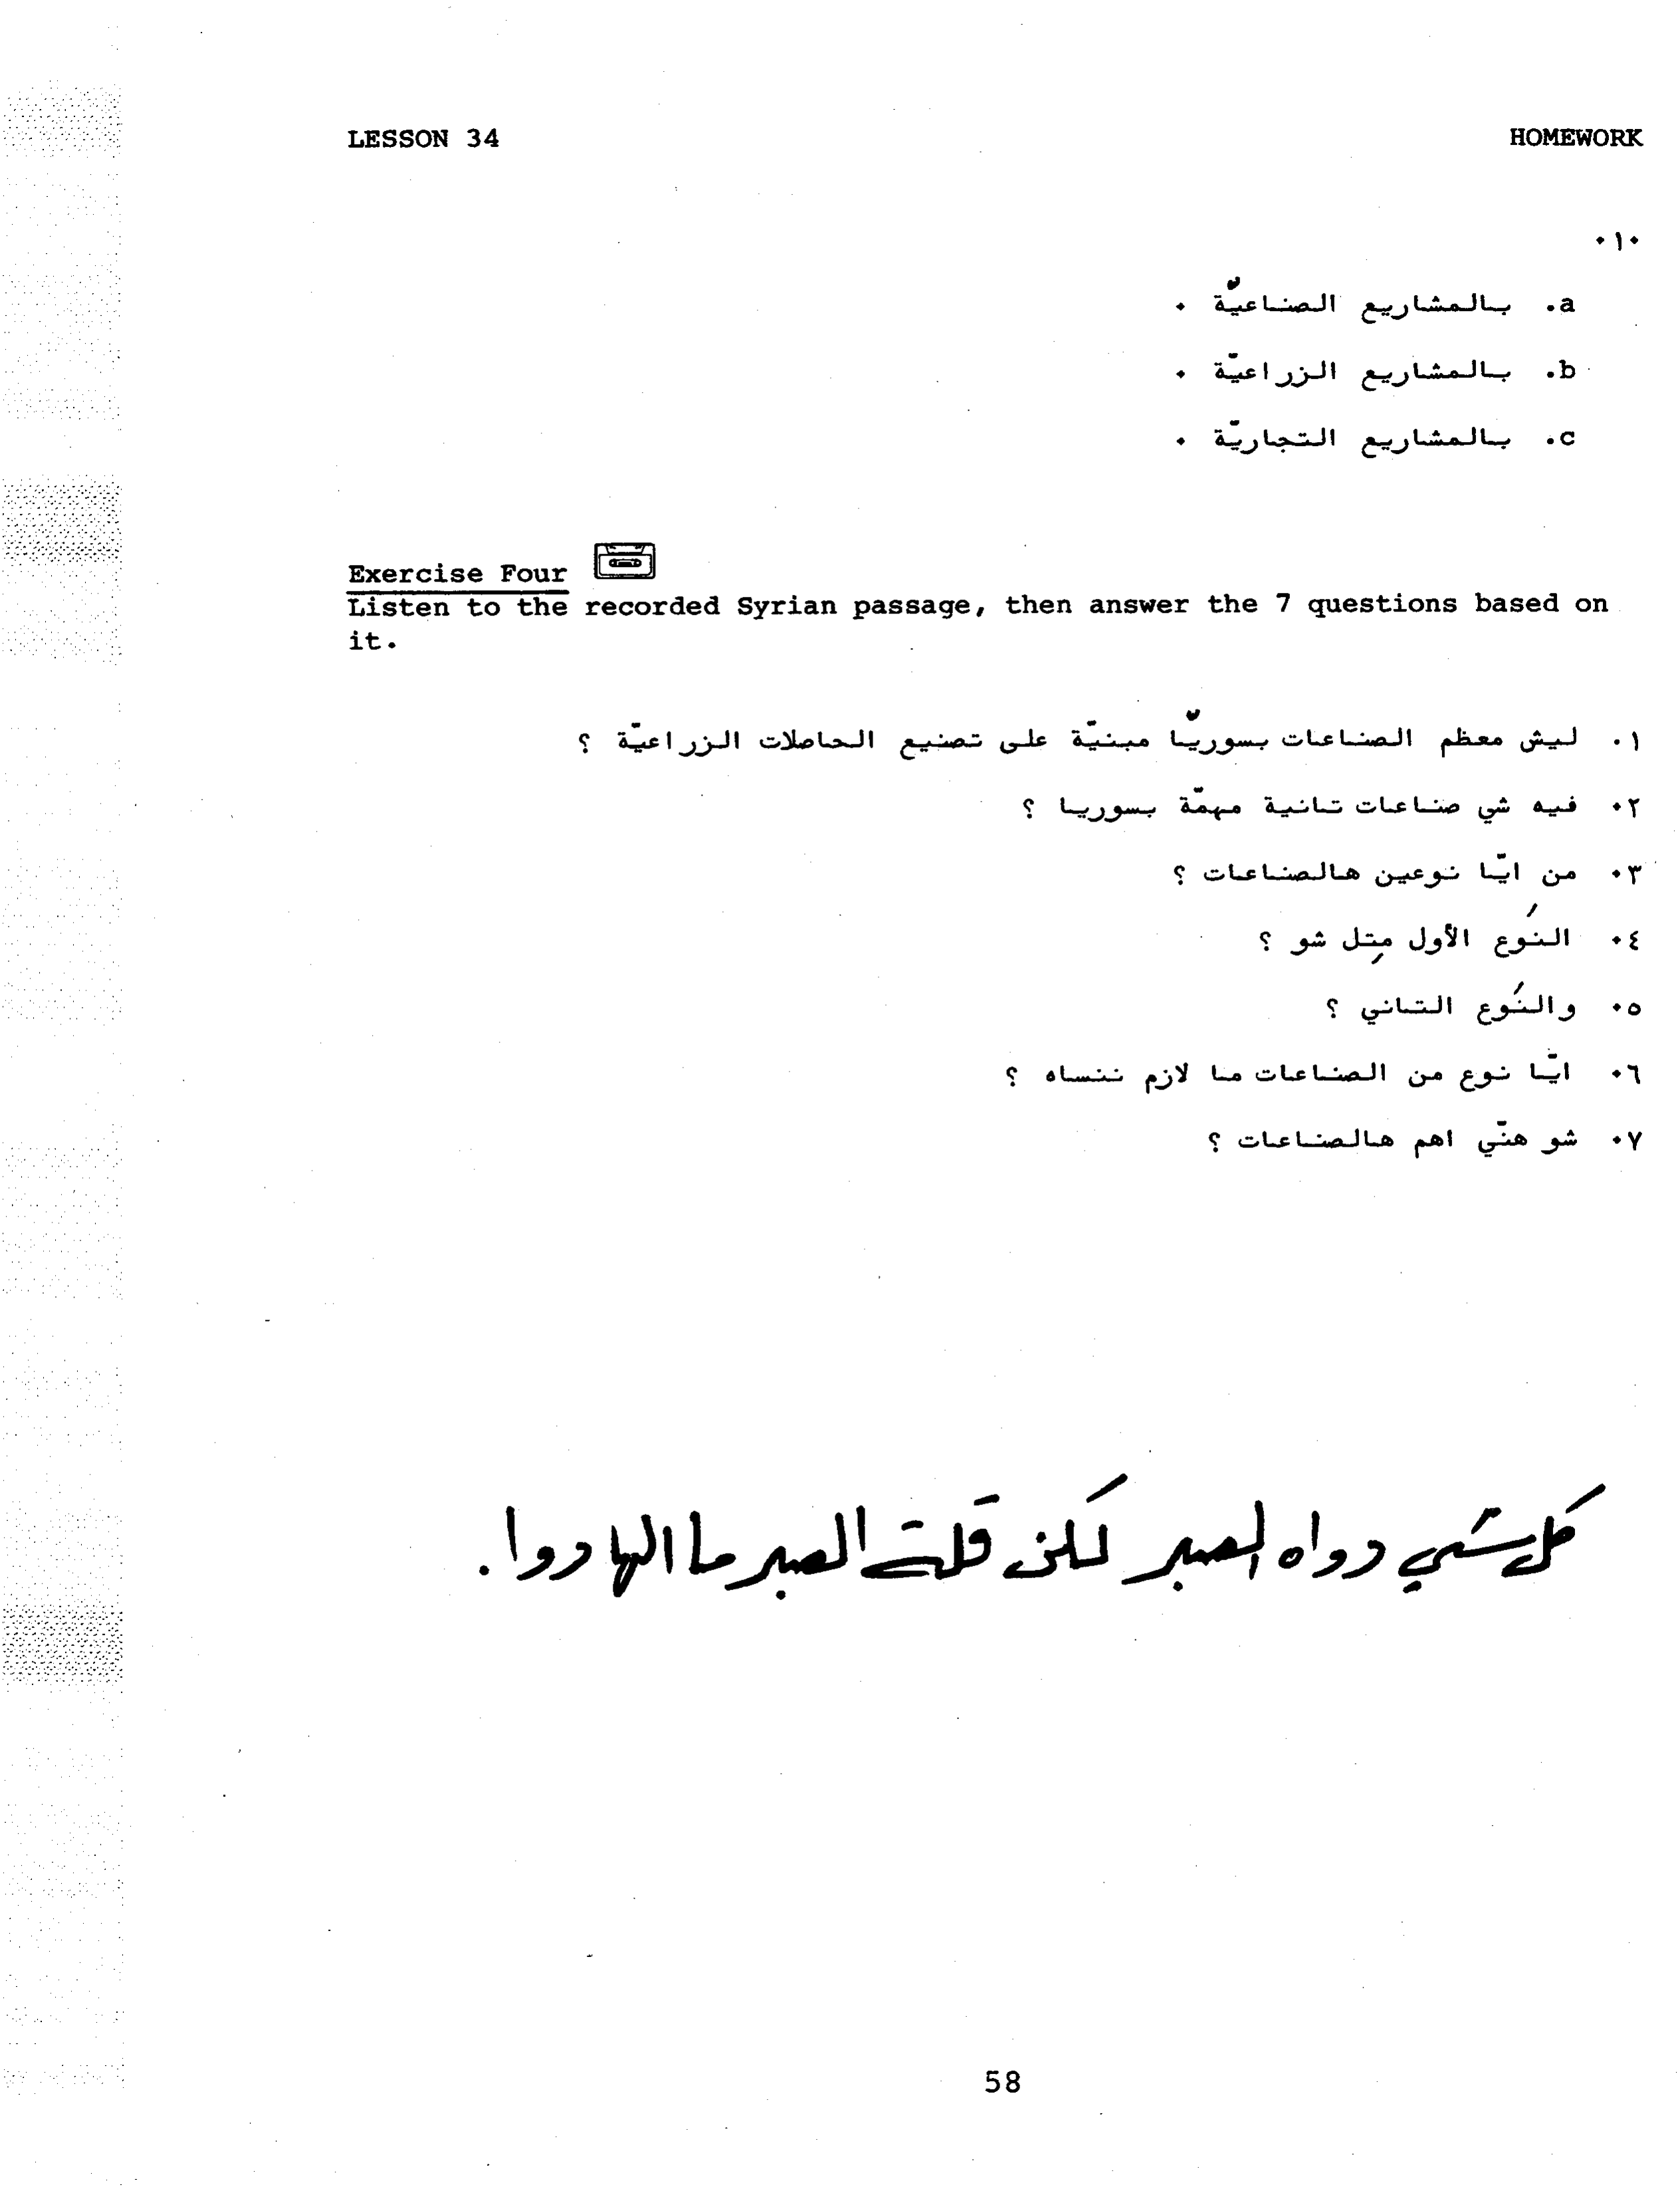 LESSON 34
HOMEWORK
١٠.
a. بالمشاريع الصناعيّة .
b. بالمشاريع الزراعيّة .
c. بالمشاريع التجاريّة .
Exercise Four
Listen to the recorded Syrian passage, then answer the 7 questions based on
it.
١. ليش معظم الصناعات بسوريّا مبنيّة على تصنيع الحاصلات الزراعيّة ؟
٢. فيه شي صناعات تانية مهمّة بسوريا ؟
٣. من ايّا نوعين هالصناعات ؟
٤. النَوع الأول مِتل شو ؟
٥. والنَوع التاني ؟
٦. ايّا نوع من الصناعات ما لازم ننساه ؟
٧. شو هنّي اهم هالصناعات ؟
كل شي دواه الصبر لكن قلت الصبر ما الها دوا.
58